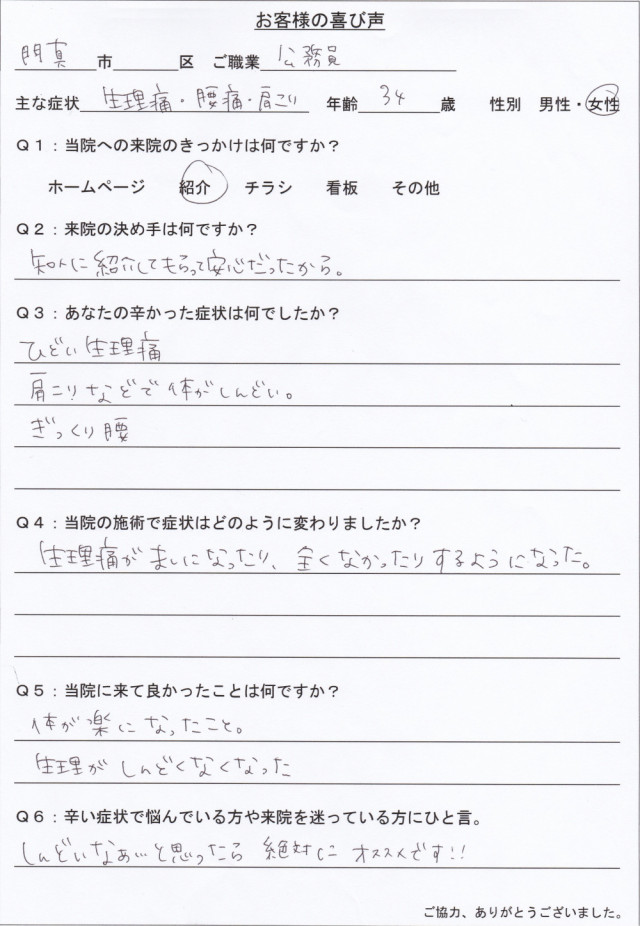 お客様の喜び声
門真 市 区 ご職業 公務員
主な症状 生理痛・腰痛・肩こり 年齢 34 歳 性別 男性・女性
Q1：当院への来院のきっかけは何ですか？
ホームページ 紹介 チラシ 看板 その他
Q2：来院の決め手は何ですか？
知人に紹介してもらって安心だったから。
Q3：あなたの辛かった症状は何でしたか？
ひどい生理痛
肩こりなどで体がしんどい。
ぎっくり腰
Q4：当院の施術で症状はどのように変わりましたか？
生理痛がましになったり、全くなかったりするようになった。
Q5：当院に来て良かったことは何ですか？
体が楽になったこと。
生理がしんどくなくなった
Q6：辛い症状で悩んでいる方や来院を迷っている方にひと言。
しんどいなぁ…と思ったら 絶対に オススメです!!
ご協力、ありがとうございました。